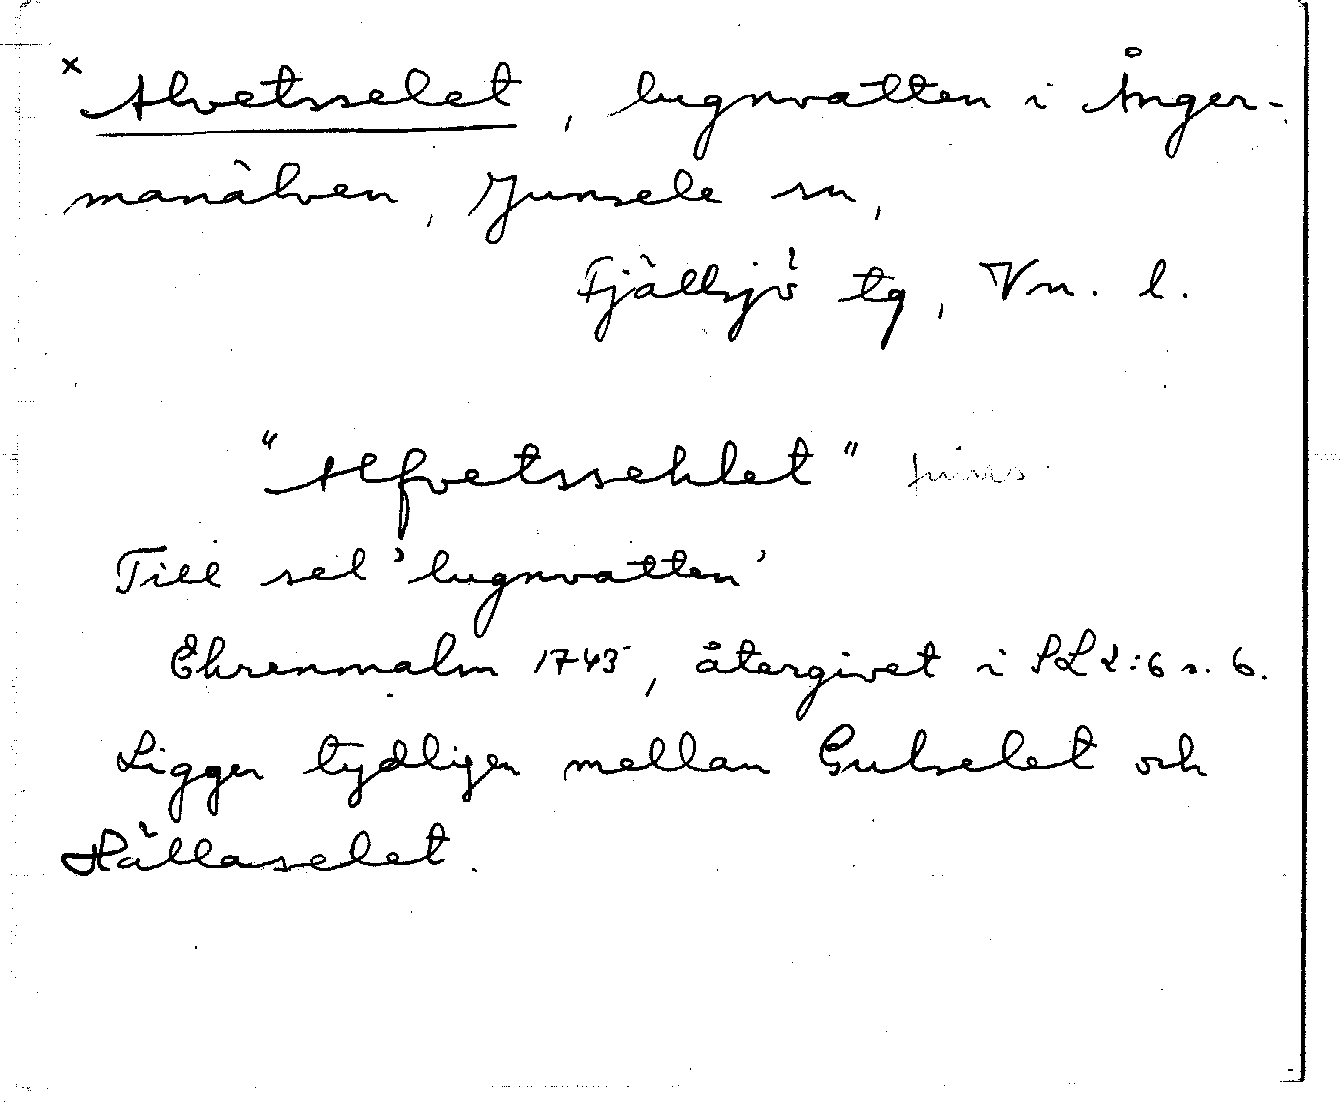 × Alvetsselet, lugnvatten i Ånger-
manälven, Junsele sn,
Fjällsjö tg, Vn. l.
"Alfvetssehlet"
Till sel 'lugnvatten'
Ehrenmalm 1743, återgivet i SL 2:6 s. 6.
Ligger tydligen mellan Gulselet och
Hällaselet.